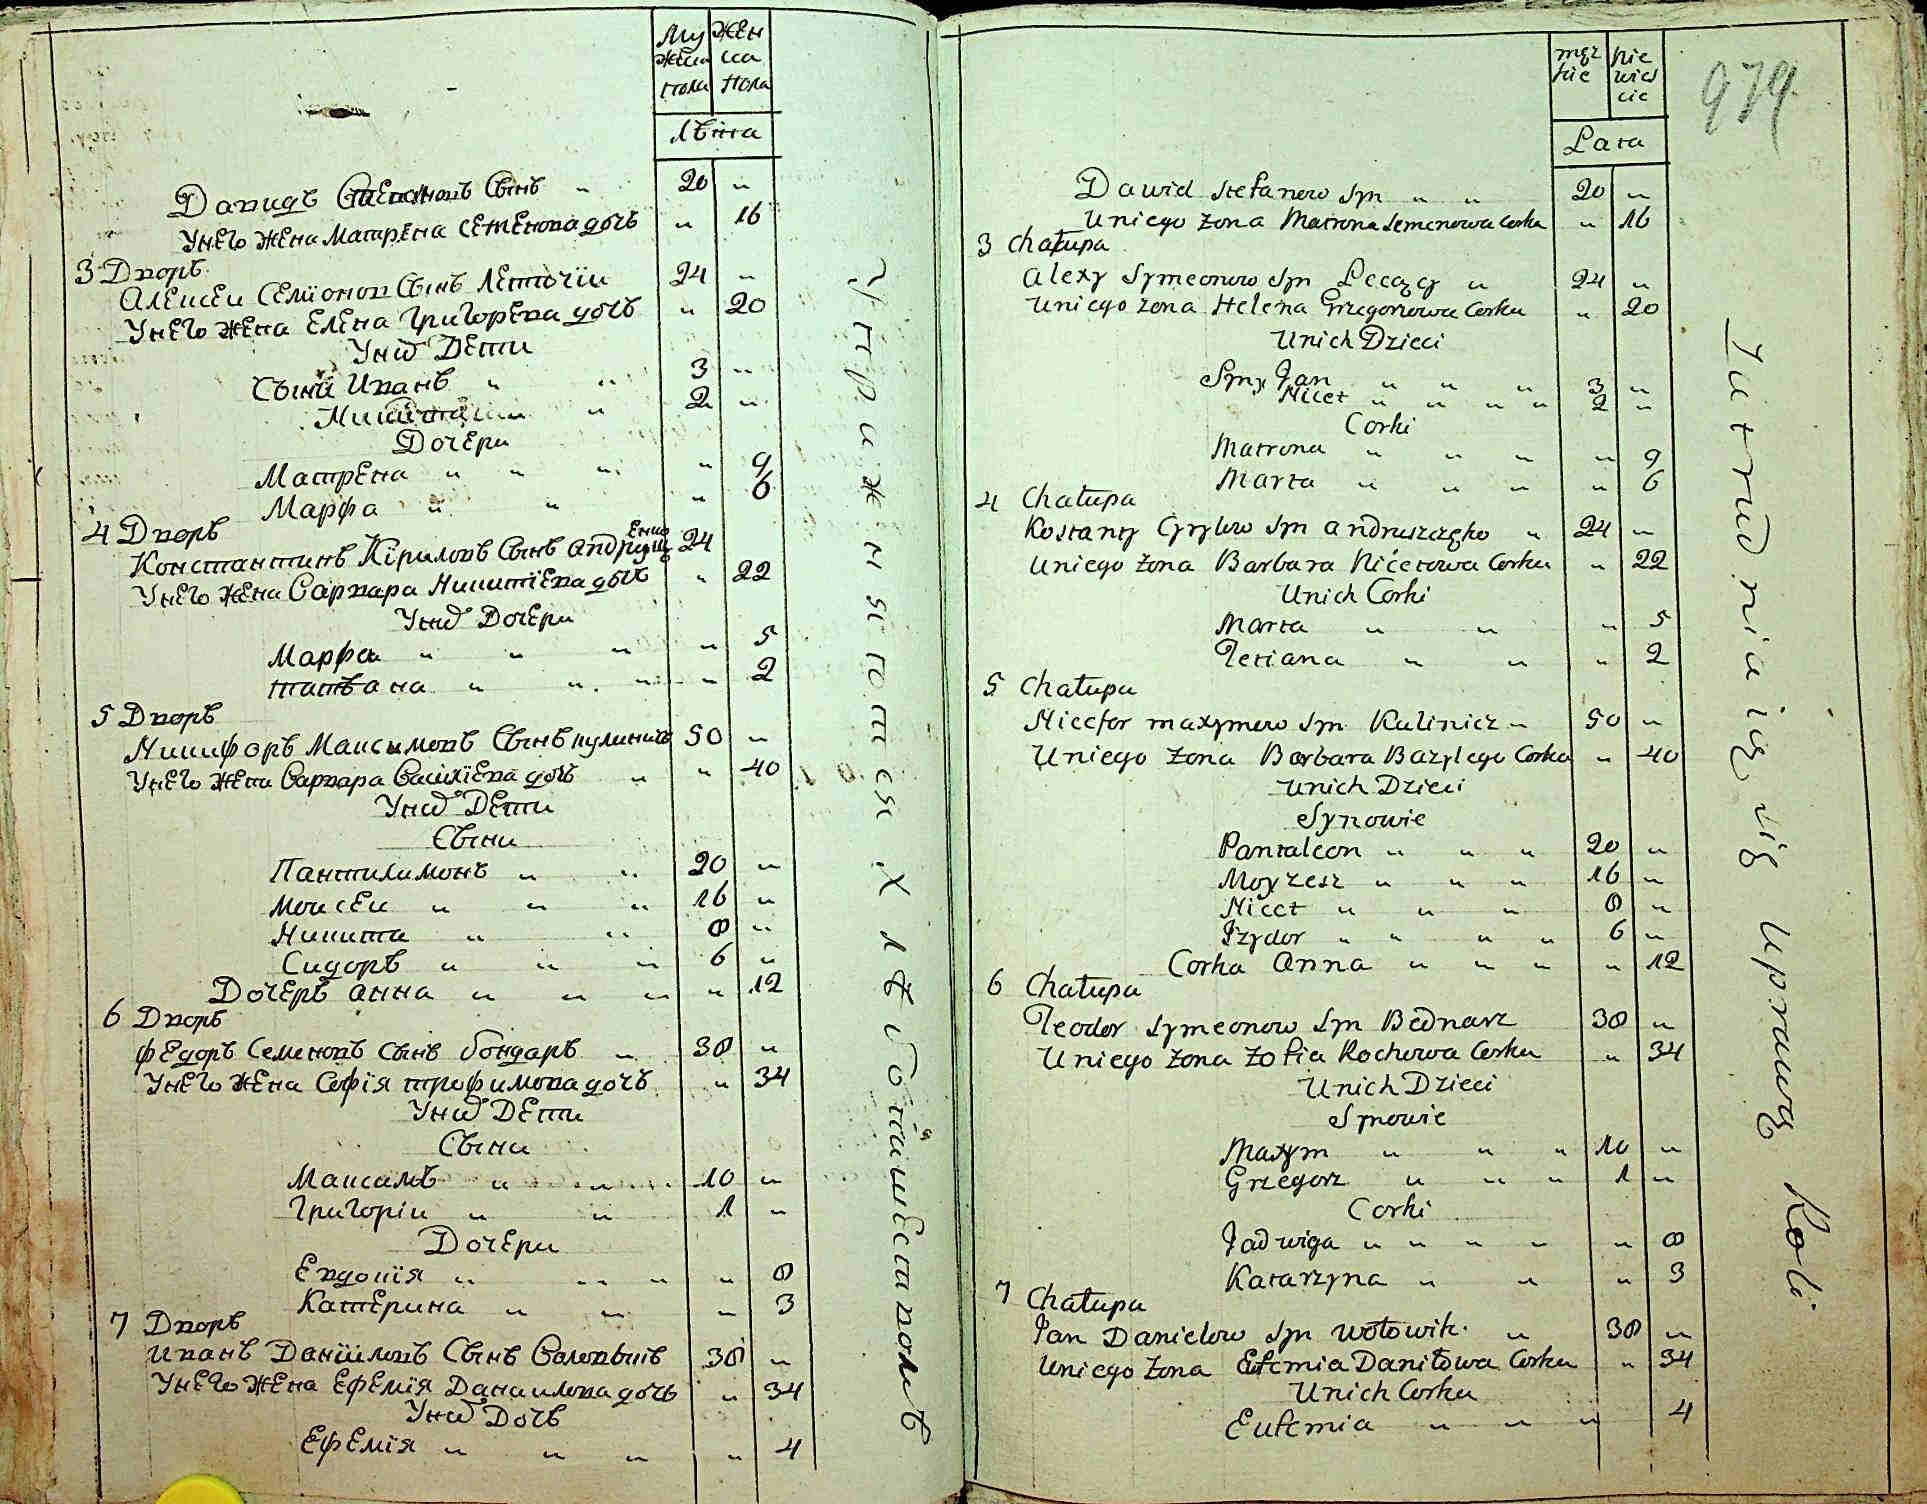 Му жеска пола
Жен ска пола
лѣта
Давидъ Степановъ Сынъ " 20 "
Унего жена Матрена Семенова дочь " 16
3 Дворъ
Алексеи Семионов Сынъ Леточїи 24 "
Унего жена Елена Григорева дочь " 20
Уних Дети
Сыни Иванъ " " 3 "
Микита " 2 "
Дочери
Матрена " " " " 9
Марфа " " " 6
4 Дворъ
Константинъ Кириловъ Сынъ Андрущенко 24
Унего жена Варвара Никитїева дочь " 22
Уних Дочери
Марфа " " " " 5
татѣана " " " " 2
5 Дворъ
Никифоръ Максимовъ Сынъ кулиничъ 50 "
Унего жена Варвара Василїева дочь " " 40
Уних Дети
Сыни
Пантилимонъ " " 20 "
Моисеи " " " 16 "
Никита " " 8 "
Сидоръ " " " 6 "
Дочеръ анна " " " " 12
6 Дворъ
Федоръ Семеновъ сынъ бондаръ " 38 "
Унего жена Софїя трофимова дочъ " 34
Уних Дети
Сыни
Максимъ " " 10 "
Григорїи " " 1 "
Дочери
Евдокїя " " " " 8
Катерина " " " 3
7 Дворъ
Иванъ Данїиловъ Сынъ Воловыкъ 38 "
Унего жена Ефемїя Данилова дочь " 34
Уних Дочъ
Ефемїя " " " " 4
męz kie
nie wies cie
979
Lata
Dawid Stefanow Syn " " 20 "
Uniego żona Matrona Semenowa Corka " 16
3 Chałupa
Alexy Symeonow Syn Leczczy " 24 "
Uniego żona Helena Grzegorzowa Corka " 20
Unich Dzieci
Syny Jan " " " 3 "
Nicet " " " " 2 "
Corki
Matrona " " " " 9
Marta " " " " 6
4 Chałupa
Kostanty Cyrylow Syn Andruszczęko " 24 "
Uniego żona Barbara Nicetowa Corka " 22
Unich Corki
Marta " " " 5
Tetiana " " " 2
5 Chałupa
Nicefor Maxymow Syn Kulinicz " 50 "
Uniego żona Barbara Bazylego Corka " 40
Unich Dzieci
Synowie
Pantaleon " " " 20 "
Moyżesz " " " 16 "
Nicet " " " 8 "
Izydor " " " " 6 "
Corka Anna " " " " 12
6 Chałupa
Teodor Symeonow Syn Bednarz 38 "
Uniego żona Zofia Rochowa Corka " 34
Unich Dzieci
Synowie
Maxym " " " 10 "
Grzegorz " " " 1 "
Corki
Jadwiga " " " " " 8
Katarzyna " " " 3
7 Chałupa
Jan Danielow Syn Wołowik " 38 "
Uniego żona Eufemia Daniłowa Corka " 34
Unich Corka
Eufemia " " " 4
Zatrudniaią się Uprawą Roli